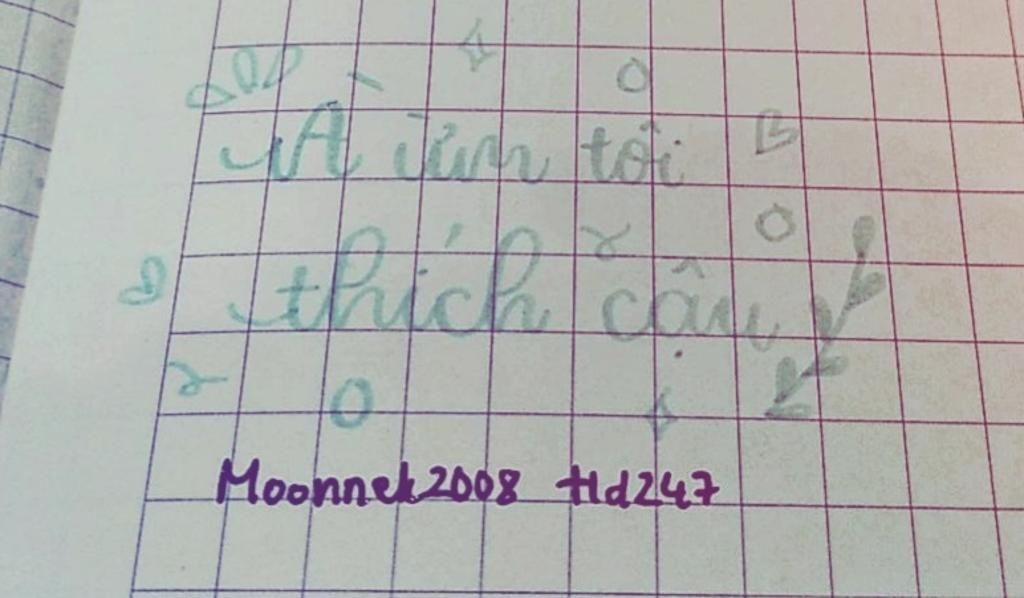 À ừm tôi
thích cậu
Moonnek2008 Hd247